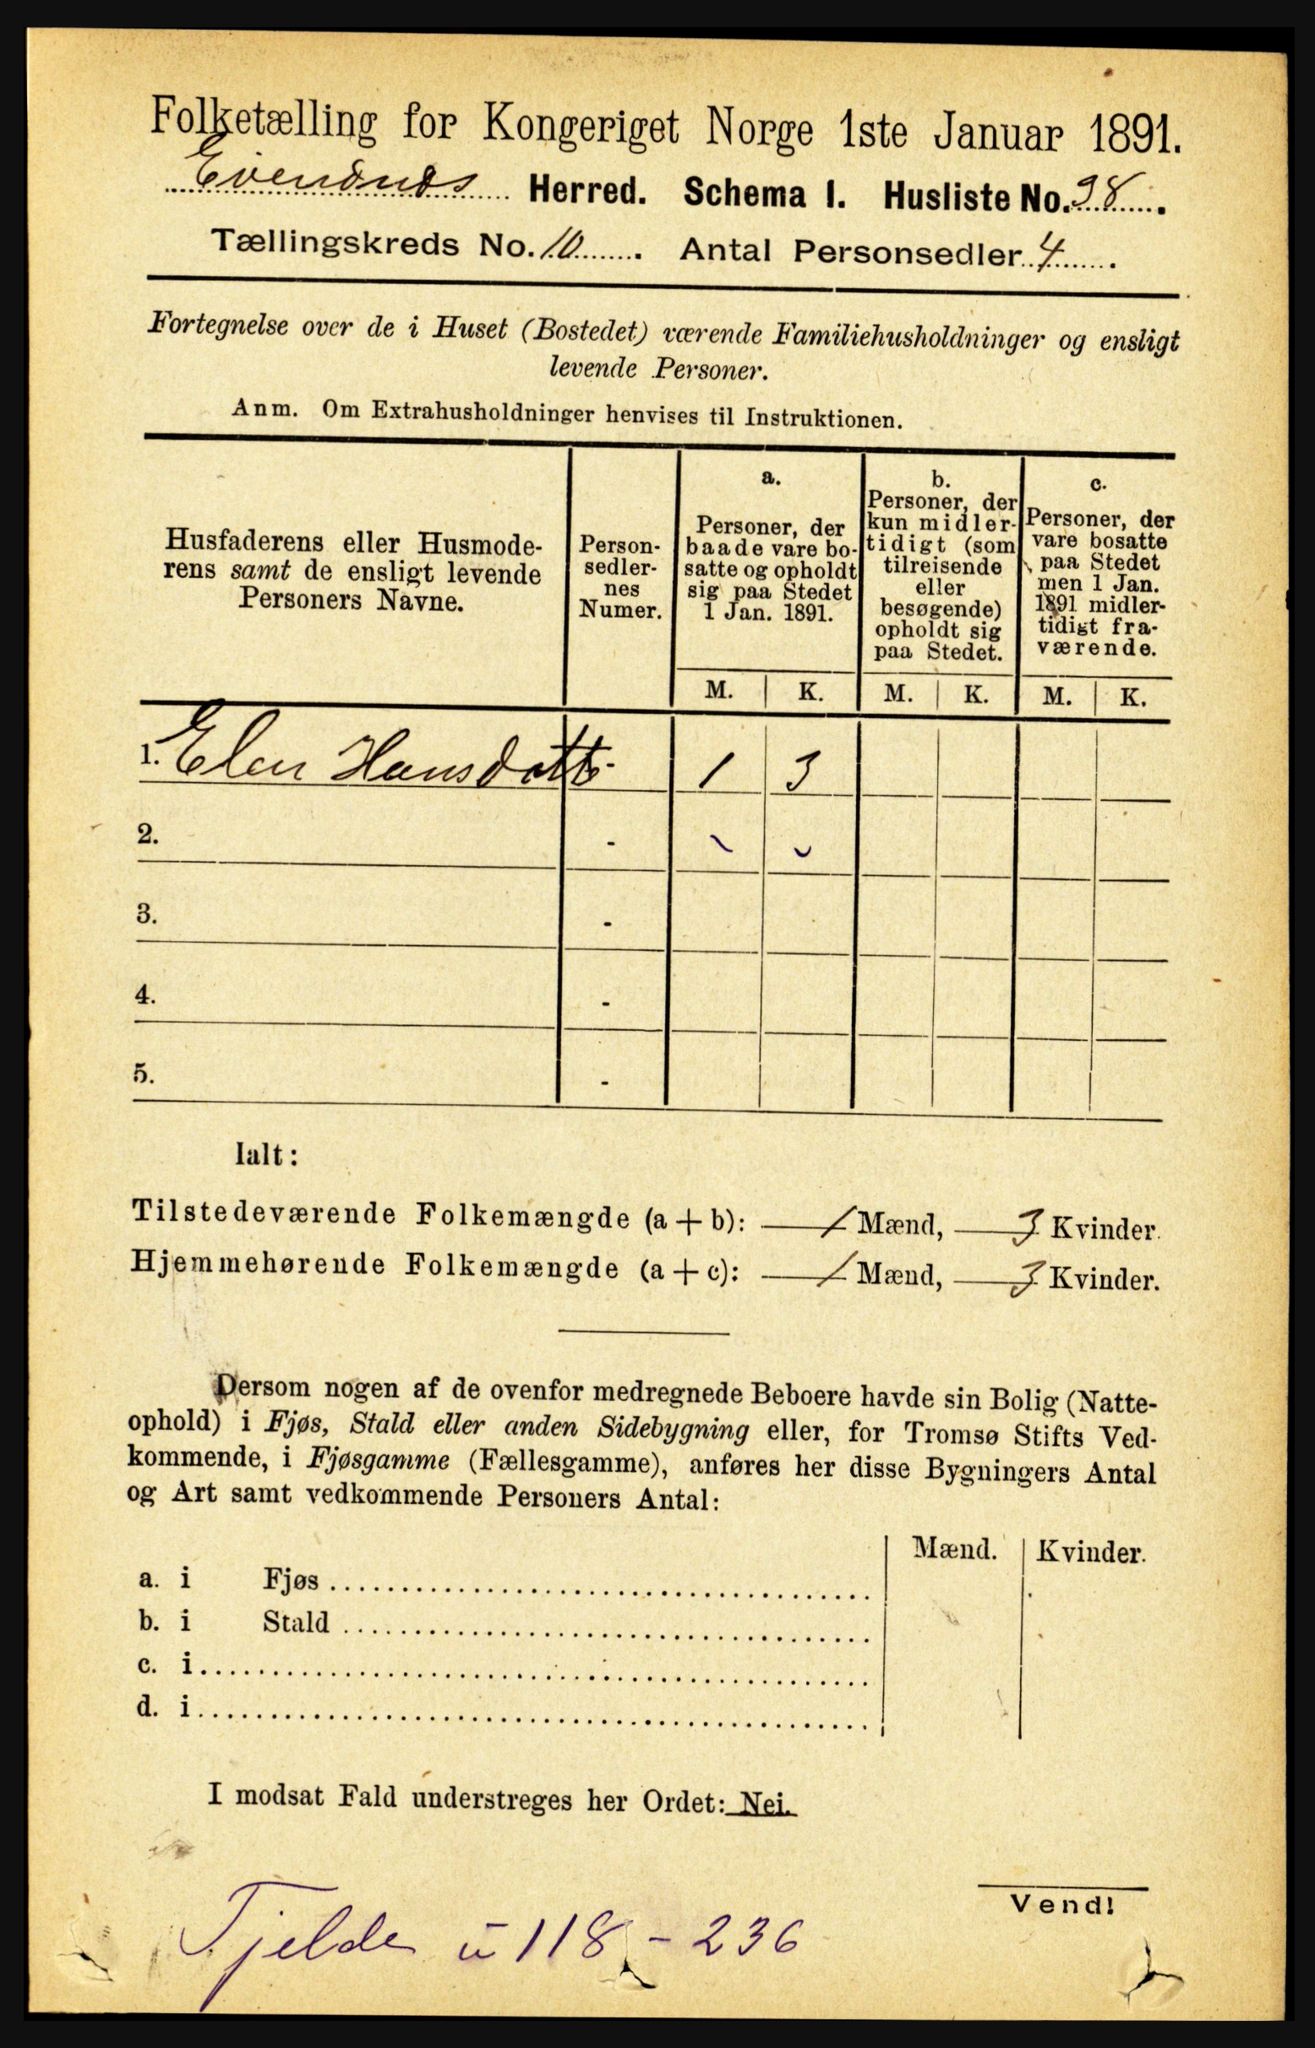 Folketælling for Kongeriget Norge 1ste Januar 1891.
Evendnæs Herred. Schema I. Husliste No. 38.
Tællingskreds No. 10. Antal Personsedler 4.
Fortegnelse over de i Huset (Bostedet) værende Familiehusholdninger og ensligt
levende Personer.
Anm. Om Extrahusholdninger henvises til Instruktionen.
Husfaderens eller Husmode-
rens samt de ensligt levende
Personers Navne.
Person-
sedler-
nes
Numer.
a.
Personer, der
baade vare bo-
satte og opholdt
sig paa Stedet
1 Jan. 1891.
b.
Personer, der
kun midler-
tidigt (som
tilreisende
eller
besøgende)
opholdt sig
paa Stedet.
c.
Personer, der
vare bosatte
paa Stedet
men 1 Jan.
1891 midler-
tidigt fra-
værende.
M. K. M. K. M. K.
1. Elen Hansdottr 1 3
2. -
3. -
4. -
5. -
Ialt:
Tilstedeværende Folkemængde (a + b): — 1 Mænd, — 3 Kvinder.
Hjemmehørende Folkemængde (a + c): — 1 Mænd, — 3 Kvinder.
Dersom nogen af de ovenfor medregnede Beboere havde sin Bolig (Natte-
ophold) i Fjøs, Stald eller anden Sidebygning eller, for Tromsø Stifts Ved-
kommende, i Fjøsgamme (Fællesgamme), anføres her disse Bygningers Antal
og Art samt vedkommende Personers Antal:
Mænd. Kvinder.
a. i Fjøs
b. i Stald
c. i
d. i
I modsat Fald understreges her Ordet: Nei.
Vend!
Tjelde u 118 - 236